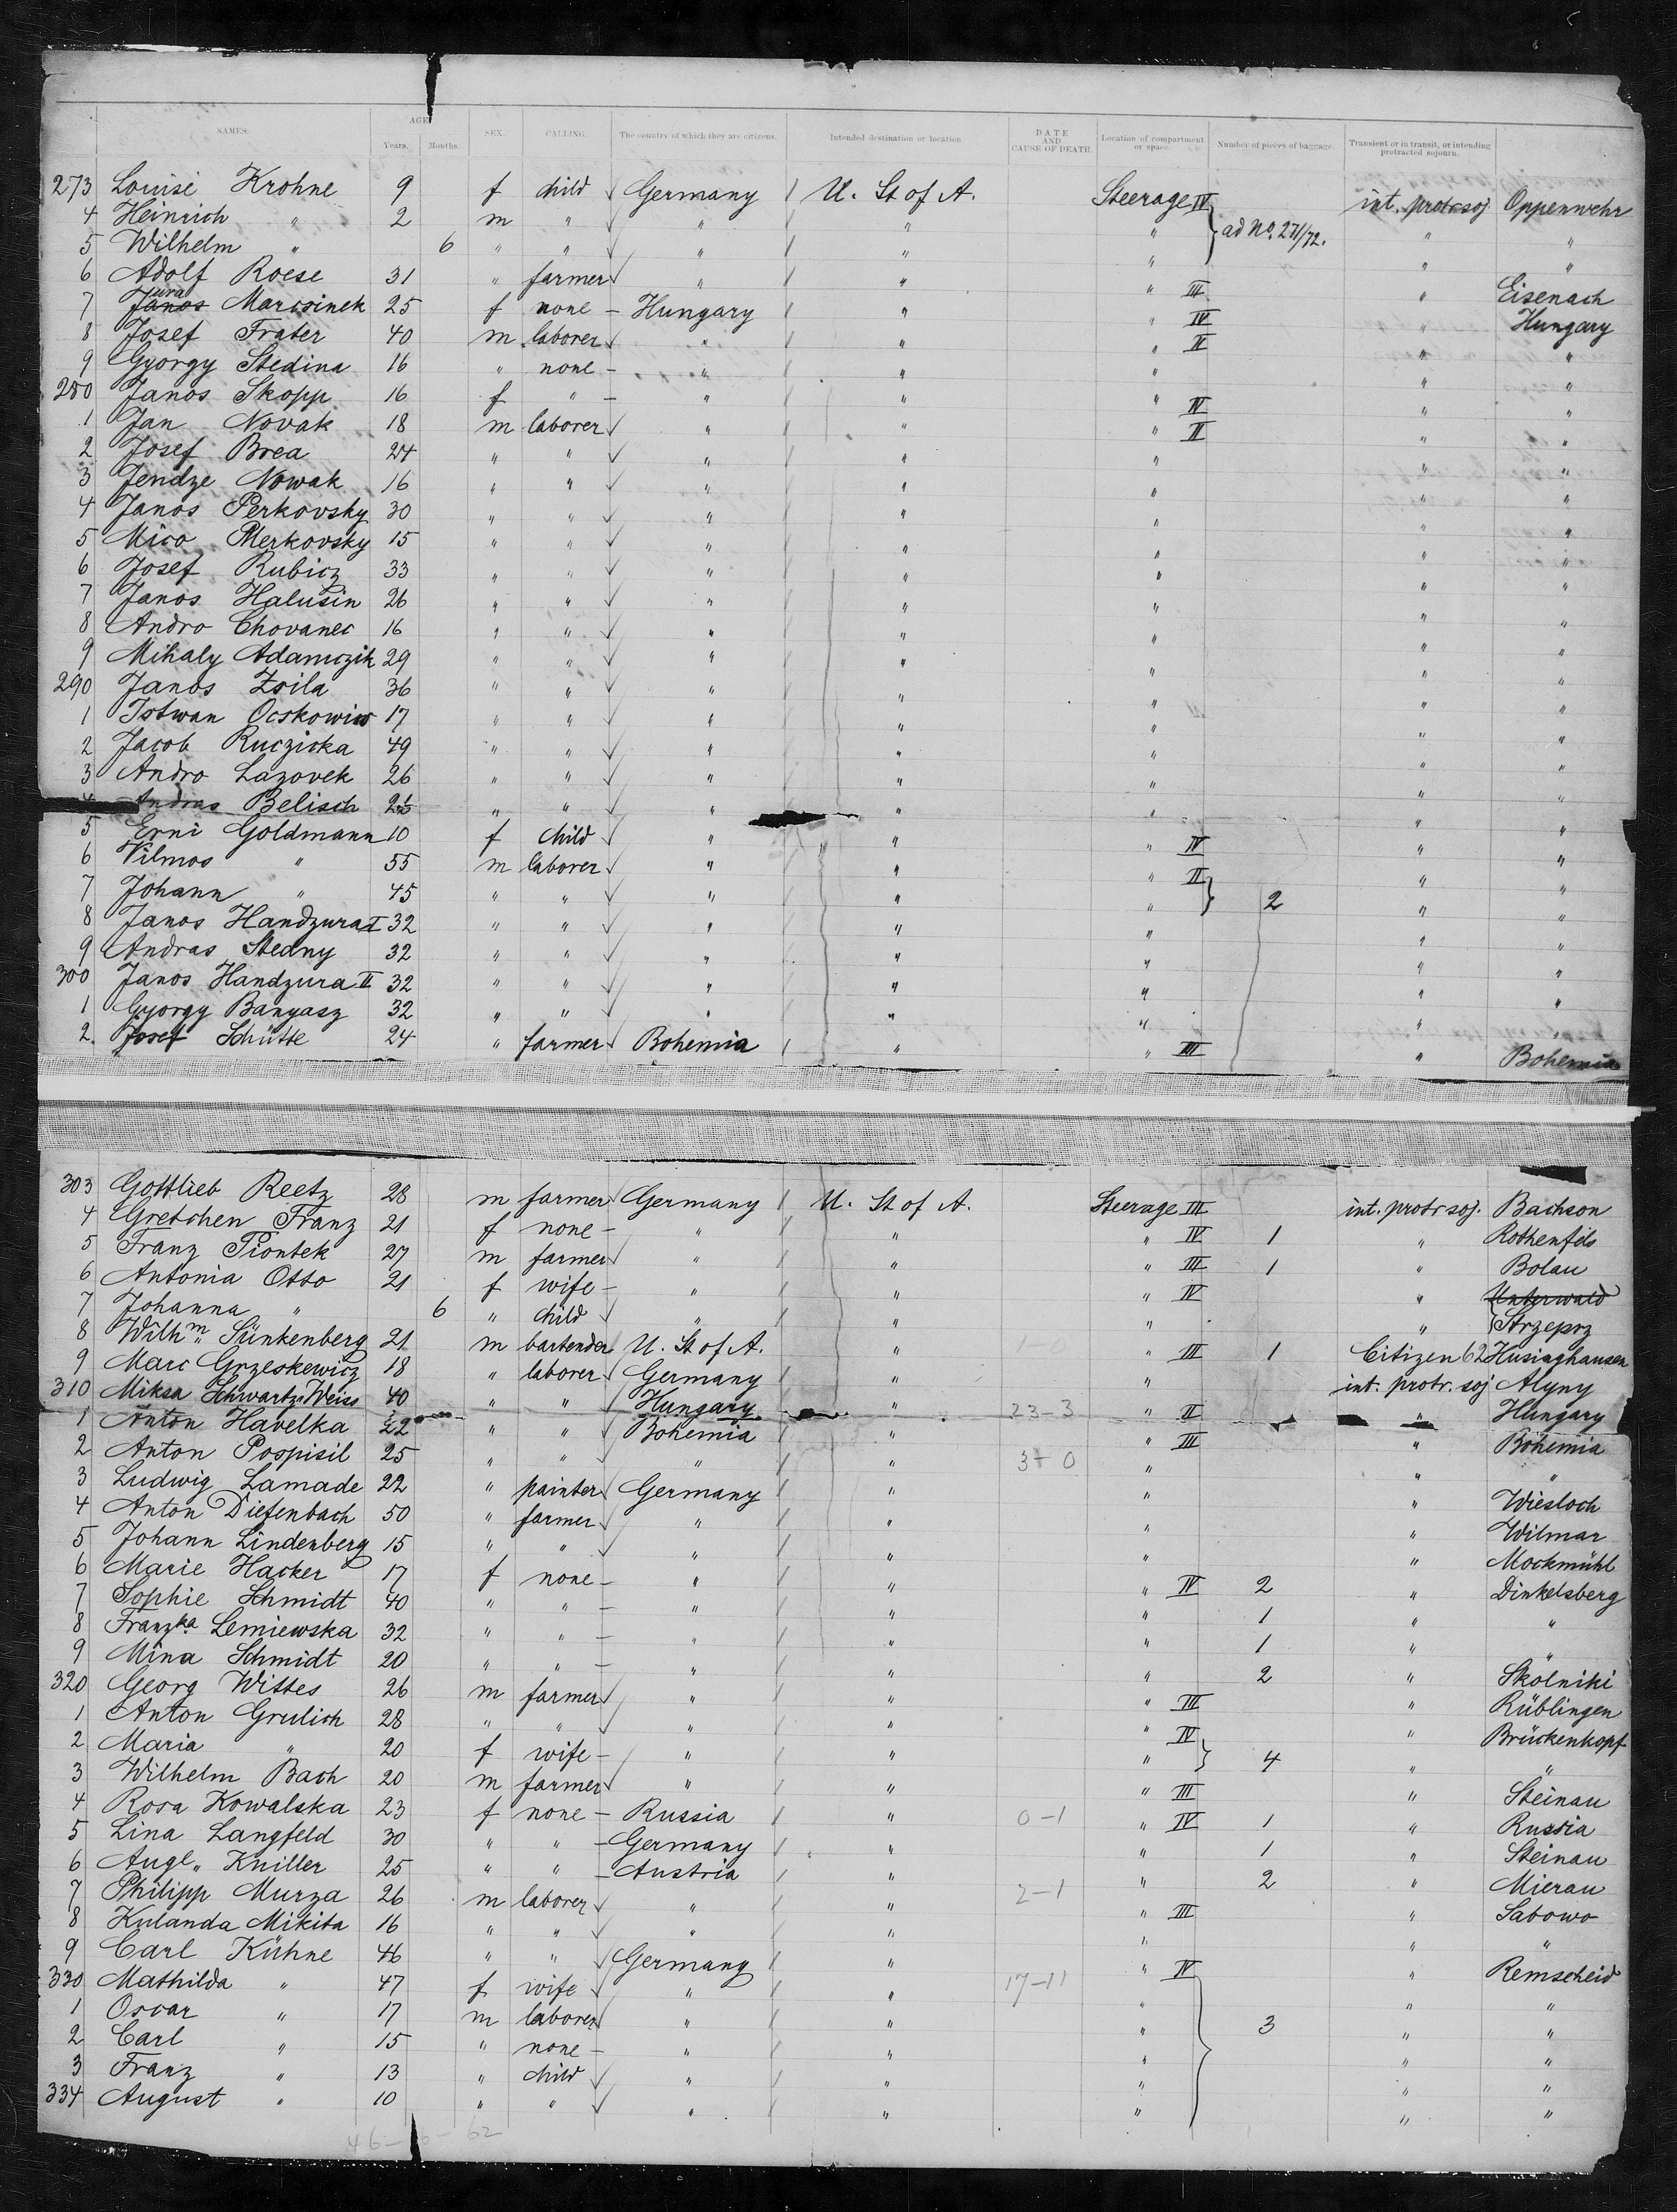 NAMES. AGE Years. Months. SEX. CALLING. The country of which they are citizens. Intended destination or location. DATE AND CAUSE OF DEATH. Location of compartment or space. Number of pieces of baggage. Transient or in transit, or intending protracted sojourn.
273 Louise Krohne 9 f child Germany U. St of A. Steerage IV ad No. 271/72. int. protr soj Oppenwehr
4 Heinrich " 2 m " " " " " "
5 Wilhelm " 6 " " " " " " "
6 Adolf Roese 31 " farmer " " " III " Eisenach
7 Janos Marcsinek 25 f none - Hungary " " IV " Hungary
8 Josef Frater 40 m laborer " " " II " "
9 Gyorgy Stedina 16 " none - " " " " "
280 Janos Skopp 16 f " - " " " IV " "
1 Jan Novak 18 m laborer " " " II " "
2 Josef Brea 24 " " " " " " "
3 Jendze Nowak 16 " " " " " " "
4 Janos Perkovsky 30 " " " " " " "
5 Mico Merkovsky 15 " " " " " " "
6 Josef Rubicz 33 " " " " " " "
7 Janos Halusin 26 " " " " " " "
8 Andro Chovanec 16 " " " " " " "
9 Mihaly Adamczik 29 " " " " " " "
290 Janos Zsila 36 " " " " " " "
1 Istwan Ocskowics 17 " " " " " " "
2 Jacob Ruczicka 49 " " " " " " "
3 Andro Lazovek 26 " " " " " " "
4 Andras Belisch " " " " " " "
5 Erni Goldmann 10 f child " " " IV " "
6 Vilmos " 55 m laborer " " " II " "
7 Johann " 45 " " " " " 2 " "
8 Janos Handzura I 32 " " " " " " "
9 Andras Stedny 32 " " " " " " "
300 Janos Handzura II 32 " " " " " " "
1 Gyorgy Banyasz 32 " " " " " " "
2. Josef Schütte 24 " farmer Bohemia " " III " Bohemia
303 Gottlieb Reetz 28 m farmer Germany U. St of A. Steerage III int. protr soj. Bachson
4 Gretchen Franz 21 f none - " " " IV 1 " Rothenfels
5 Franz Piontek 27 m farmer " " " III 1 " Bolau
6 Antonia Otto 21 f wife - " " " IV " Unterwald
7 Johanna " 6 " child " " " " Strzepcz
8 Wilhm. Sünkenberg 21 m bartender U. St of A. " " III 1 Citizen 62 Husinghausen
9 Marc Grzeskewicz 18 " laborer Germany " " int. protr. soj Alyny
310 Miksa Schwartz Weiss 40 " " Hungary " 23-3 " II " Hungary
1 Anton Havelka 22 " " Bohemia " " III " Bohemia
2 Anton Pospisil 25 " " " " 3+0 " " "
3 Ludwig Lamade 22 " painter Germany " " " Wiesloch
4 Anton Diefenbach 50 " farmer " " " " Wilmar
5 Johann Lindenberg 15 " " " " " " Mockmühl
6 Marie Hacker 17 f none - " " " IV 2 " Dinkelsberg
7 Sophie Schmidt 40 " " - " " " 1 " "
8 Franzka Lemiewska 32 " " - " " " 1 " "
9 Mina Schmidt 20 " " - " " " 2 " Skolniki
320 Georg Wittes 26 m farmer " " " III " Rüblingen
1 Anton Grulich 28 " " " " " IV " Brückenkopf
2 Maria " 20 f wife - " " " 4 " "
3 Wilhelm Bach 20 m farmer " " " III " Steinau
4 Rosa Kowalska 23 f none - Russia " 0-1 " IV 1 " Russia
5 Lina Langfeld 30 " " - Germany " " 1 " Steinau
6 Augl. Kniller 25 " " - Austria " " 2 " Mierau
7 Philipp Murza 26 m laborer " " 2-1 " III " Sabowo
8 Kulanda Mikita 16 " " " " " " "
9 Carl Kühne 46 " " Germany " " IV " Remscheid
330 Mathilda " 47 f wife " " 17-11 " " "
1 Oscar " 17 m laborer " " " 3 " "
2 Carl " 15 " none - " " " " "
3 Franz " 13 " child " " " " "
334 August " 10 " " " " " " "